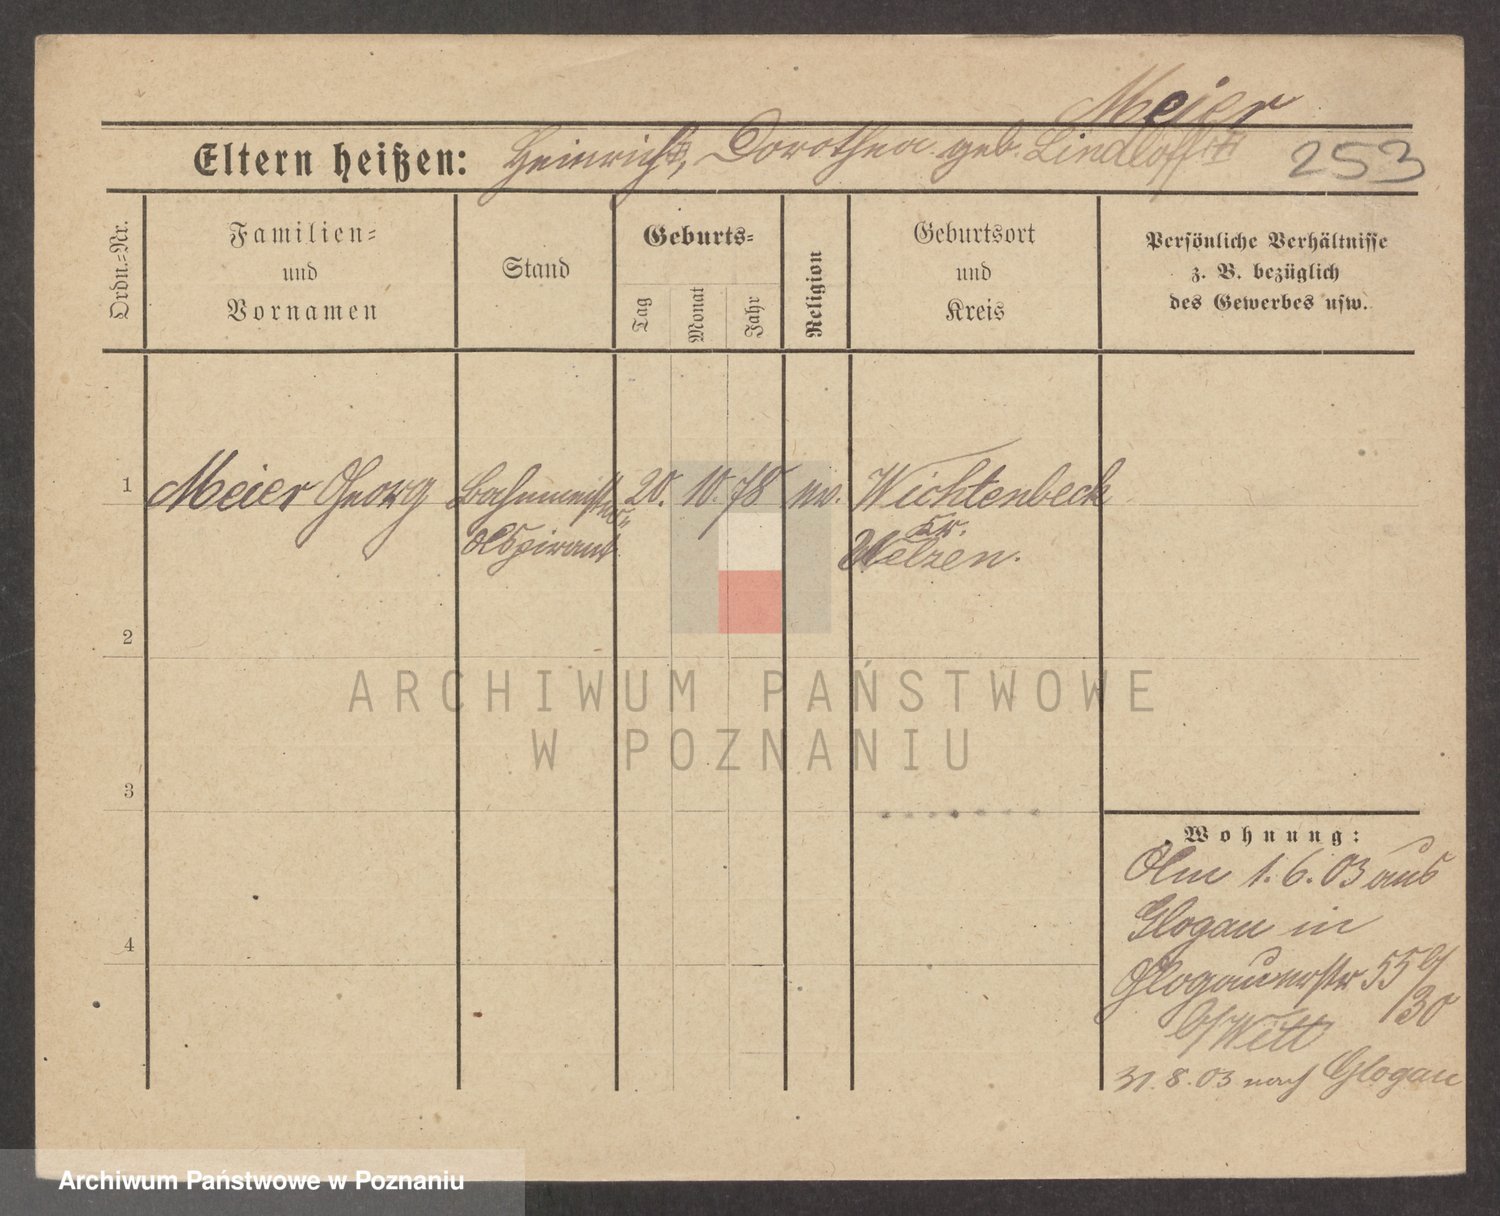 Meier
Eltern heißen: Heinrich, Dorothea geb. Lindloff
253
Ordn.-Nr.
Familien-
und
Vornamen
Stand
Geburts-
Tag
Monat
Jahr
Religion
Geburtsort
und
Kreis
Persönliche Verhältnisse
z. B. bezüglich
des Gewerbes usw.
1 Meier Georg Bahnmeister- 20. 10. 78 ev. Wichtenbeck
Aspirant
Kr.
Uelzen.
2
3
4
ARCHIWUM PAŃSTWOWE
W POZNANIU
Wohnung:
Am 1.6.03 aus
Glogau in
Glogauerstr 55 b/
30
b/Witt
31.8.03 nach Glogau
Archiwum Państwowe w Poznaniu